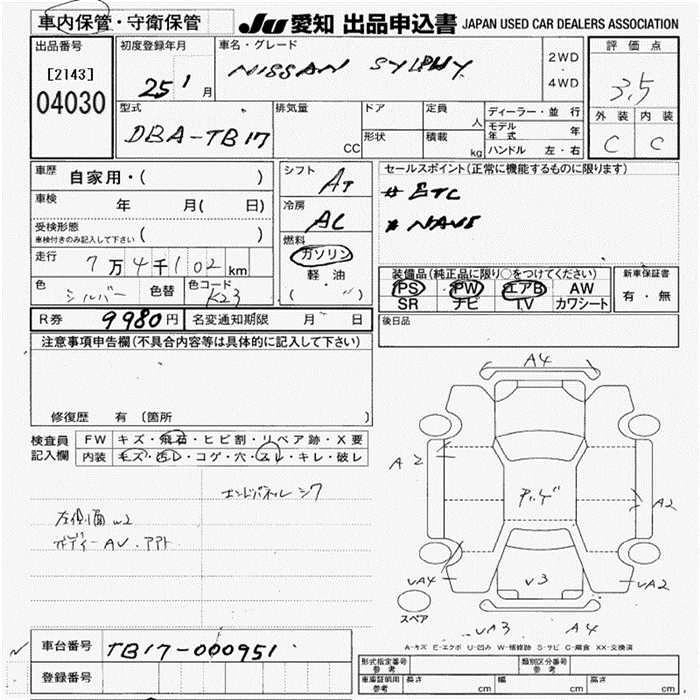 車内保管・守衛保管
JU 愛知 出品申込書 JAPAN USED CAR DEALERS ASSOCIATION
出品番号
[2143]
04030
初度登録年月
25 1 月
車名・グレード
NISSAN SYLPHY
2WD
・
4WD
評価点
3.5
外装 内装
C C
型式
DBA-TB17
排気量
CC
ドア
形状
定員
人
積載
kg
ディーラー・並行
モデル年式 年
ハンドル 左・右
車歴 自家用・( )
車検 年 月( 日)
受検形態
車検付きのみ記入して下さい ( )
走行 7万4千102km
色 シルバー 色替 色コード K23
シフト
AT
冷房
AC
燃料
ガソリン
軽油
( )
セールスポイント(正常に機能するものに限ります)
# ETC
# NAVI
装備品(純正品に限り○をつけてください)
PS PW エアB AW
SR ナビ TV カワシート
新車保証書
有・無
後日品
R券 9980円 名変通知期限 月 日
注意事項申告欄(不具合内容等は具体的に記入して下さい)
修復歴 有 〔箇所 〕
検査員記入欄
FW キズ・飛石・ヒビ割・リペア跡・X要
内装 キズ・汚レ・コゲ・穴・スレ・キレ・破レ
エンドパネルシワ
左側面 W2
ボディー AV・アアト
A4
A2
A2
UA4
V3
UA2
スペア
A4
A-キズ E-エクボ U-凹み W-補修跡 S-サビ C-腐食 XX-交換済
車台番号 TB17-000951
登録番号
形式指定番号 参考
類別区分番号 参考
車庫証明用 参考 長さ cm 幅 cm 高さ cm